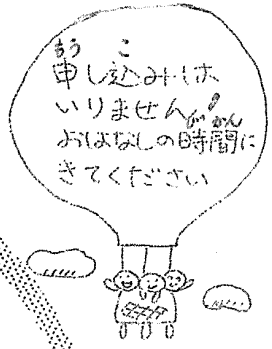 もう こ
申し込みは
いりません!
じかん
おはなしの時間に
きてください